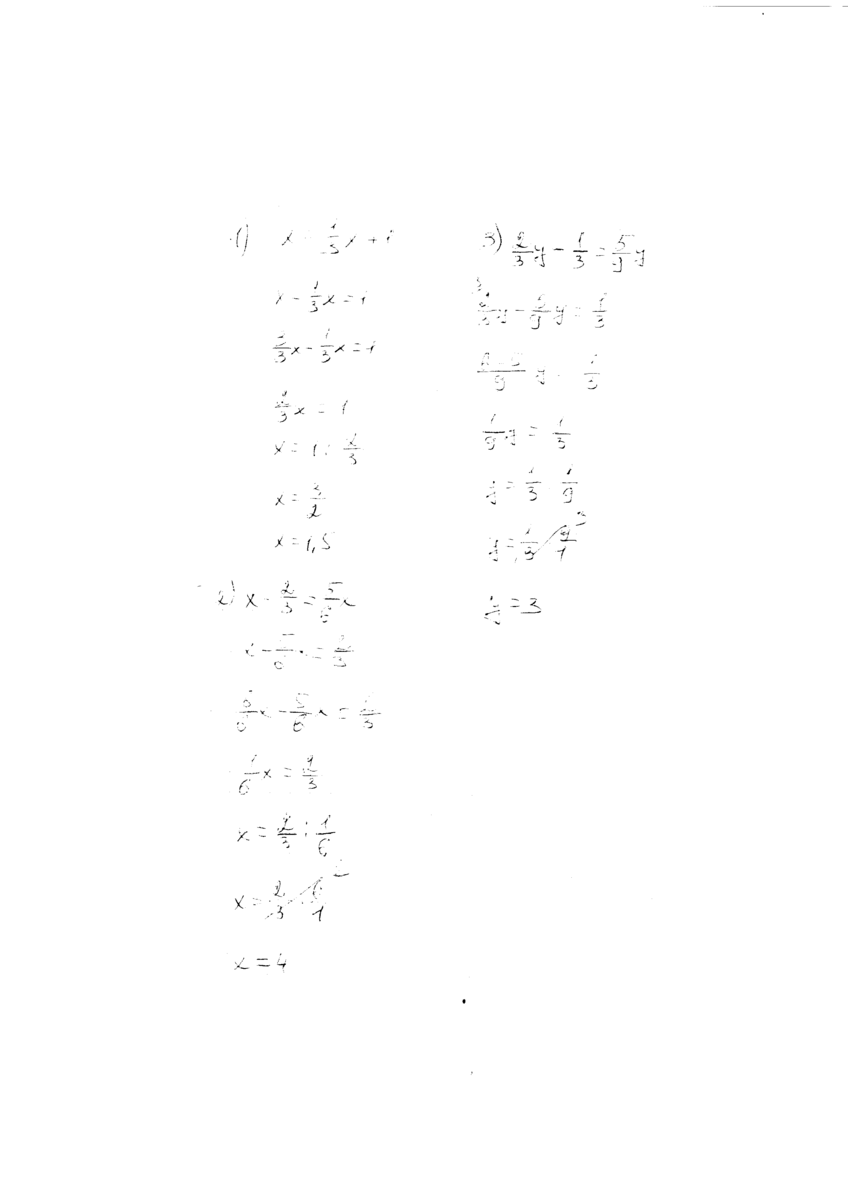 1) x = 1/3 x + 1
x - 1/3 x = 1
3/3 x - 1/3 x = 1
2/3 x = 1
x = 1 : 2/3
x = 3/2
x = 1,5
2) x - 2/3 = 5/6 x
x - 5/6 x = 2/3
6/6 x - 5/6 x = 2/3
1/6 x = 2/3
x = 2/3 : 1/6
x = 2/3 · 6/1 2
x = 4
3) 2/3 y - 1/3 = 5/9 y
2/3 y - 5/9 y = 1/3
6-5/9 y = 1/3
1/9 y = 1/3
y = 1/3 : 1/9
y = 1/3 · 9/1 3
y = 3